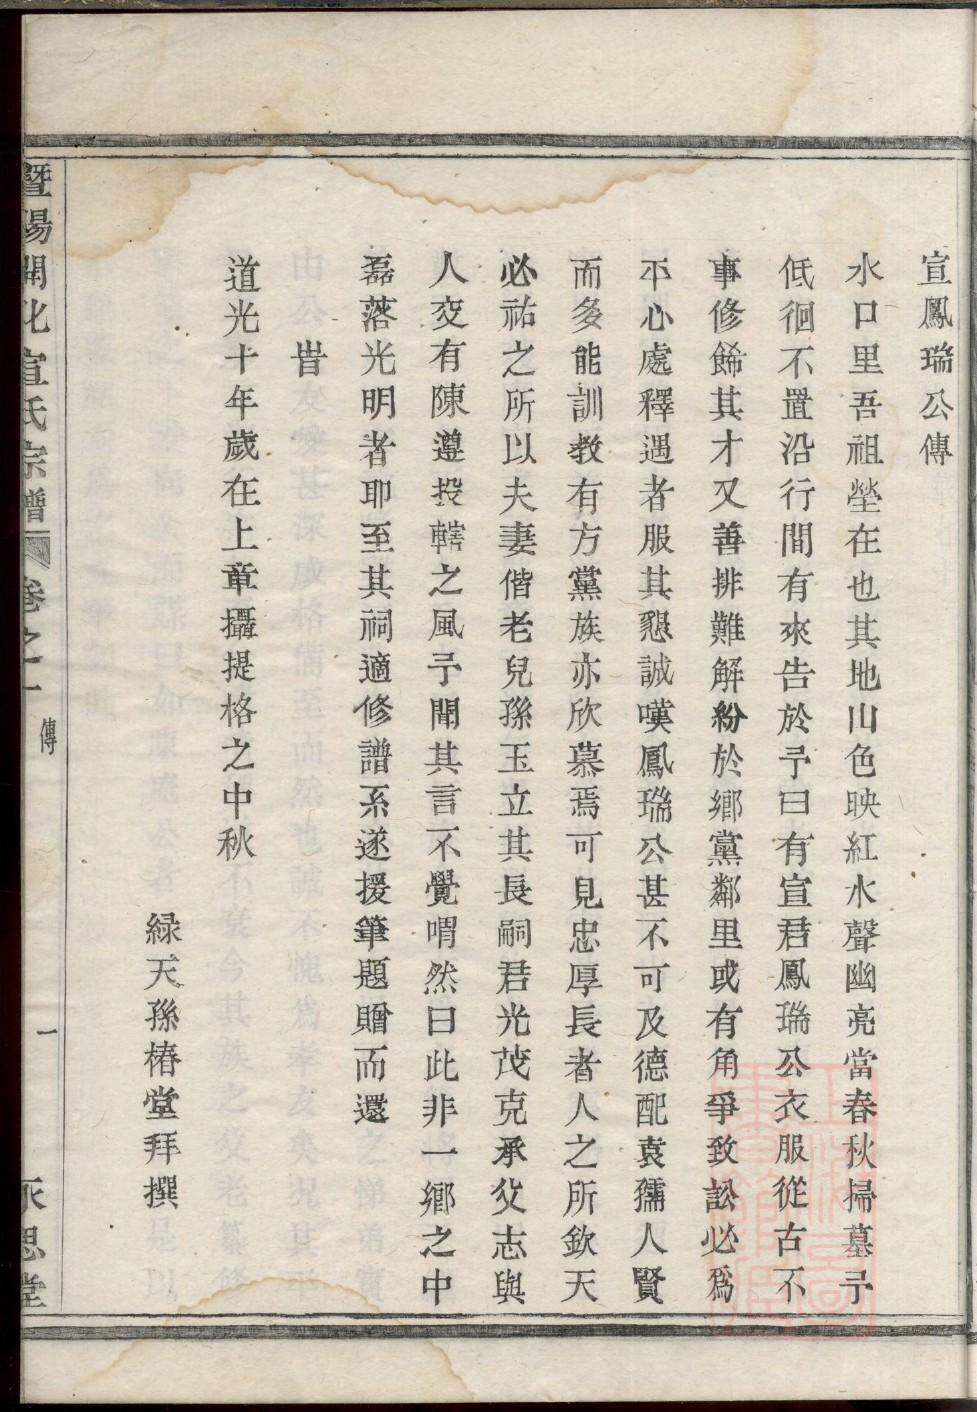 宣鳳瑞公傳
水口里吾祖塋在也其地山色映紅水聲幽亮當春秋掃墓予
低徊不置沿行間有來告於予曰有宣君鳳瑞公衣服從古不
事修餙其才又善排難解紛於鄉黨鄰里或有角爭致訟必爲
平心處釋遇者服其懇誠嘆鳳瑞公甚不可及德配袁孺人賢
而多能訓教有方黨族亦欣慕焉可見忠厚長者人之所欽天
必祐之所以夫妻偕老兒孫玉立其長嗣君光茂克承父志與
人交有陳遵投轄之風予聞其言不覺喟然曰此非一鄉之中
磊落光明者耶至其祠適修譜系遂援筆題贈而還
旹
道光十年歲在上章攝提格之中秋
緑天孫椿堂拜撰
暨陽開化宣氏宗譜 卷之一 傳 一 永思堂